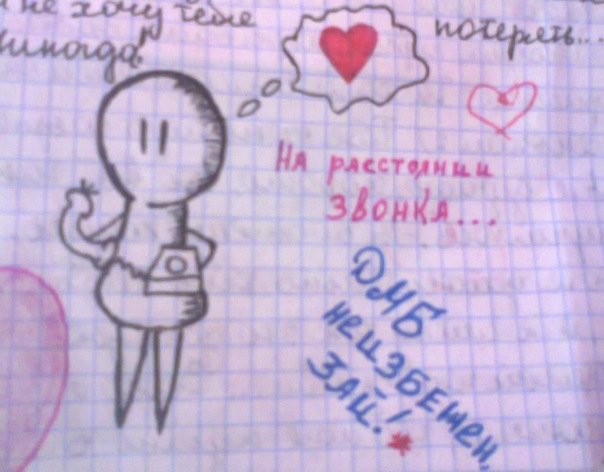 не хочу тебя потерять...
никогда!
На расстоянии
звонка...
ДМБ
неизбежен
ЗАЙ!